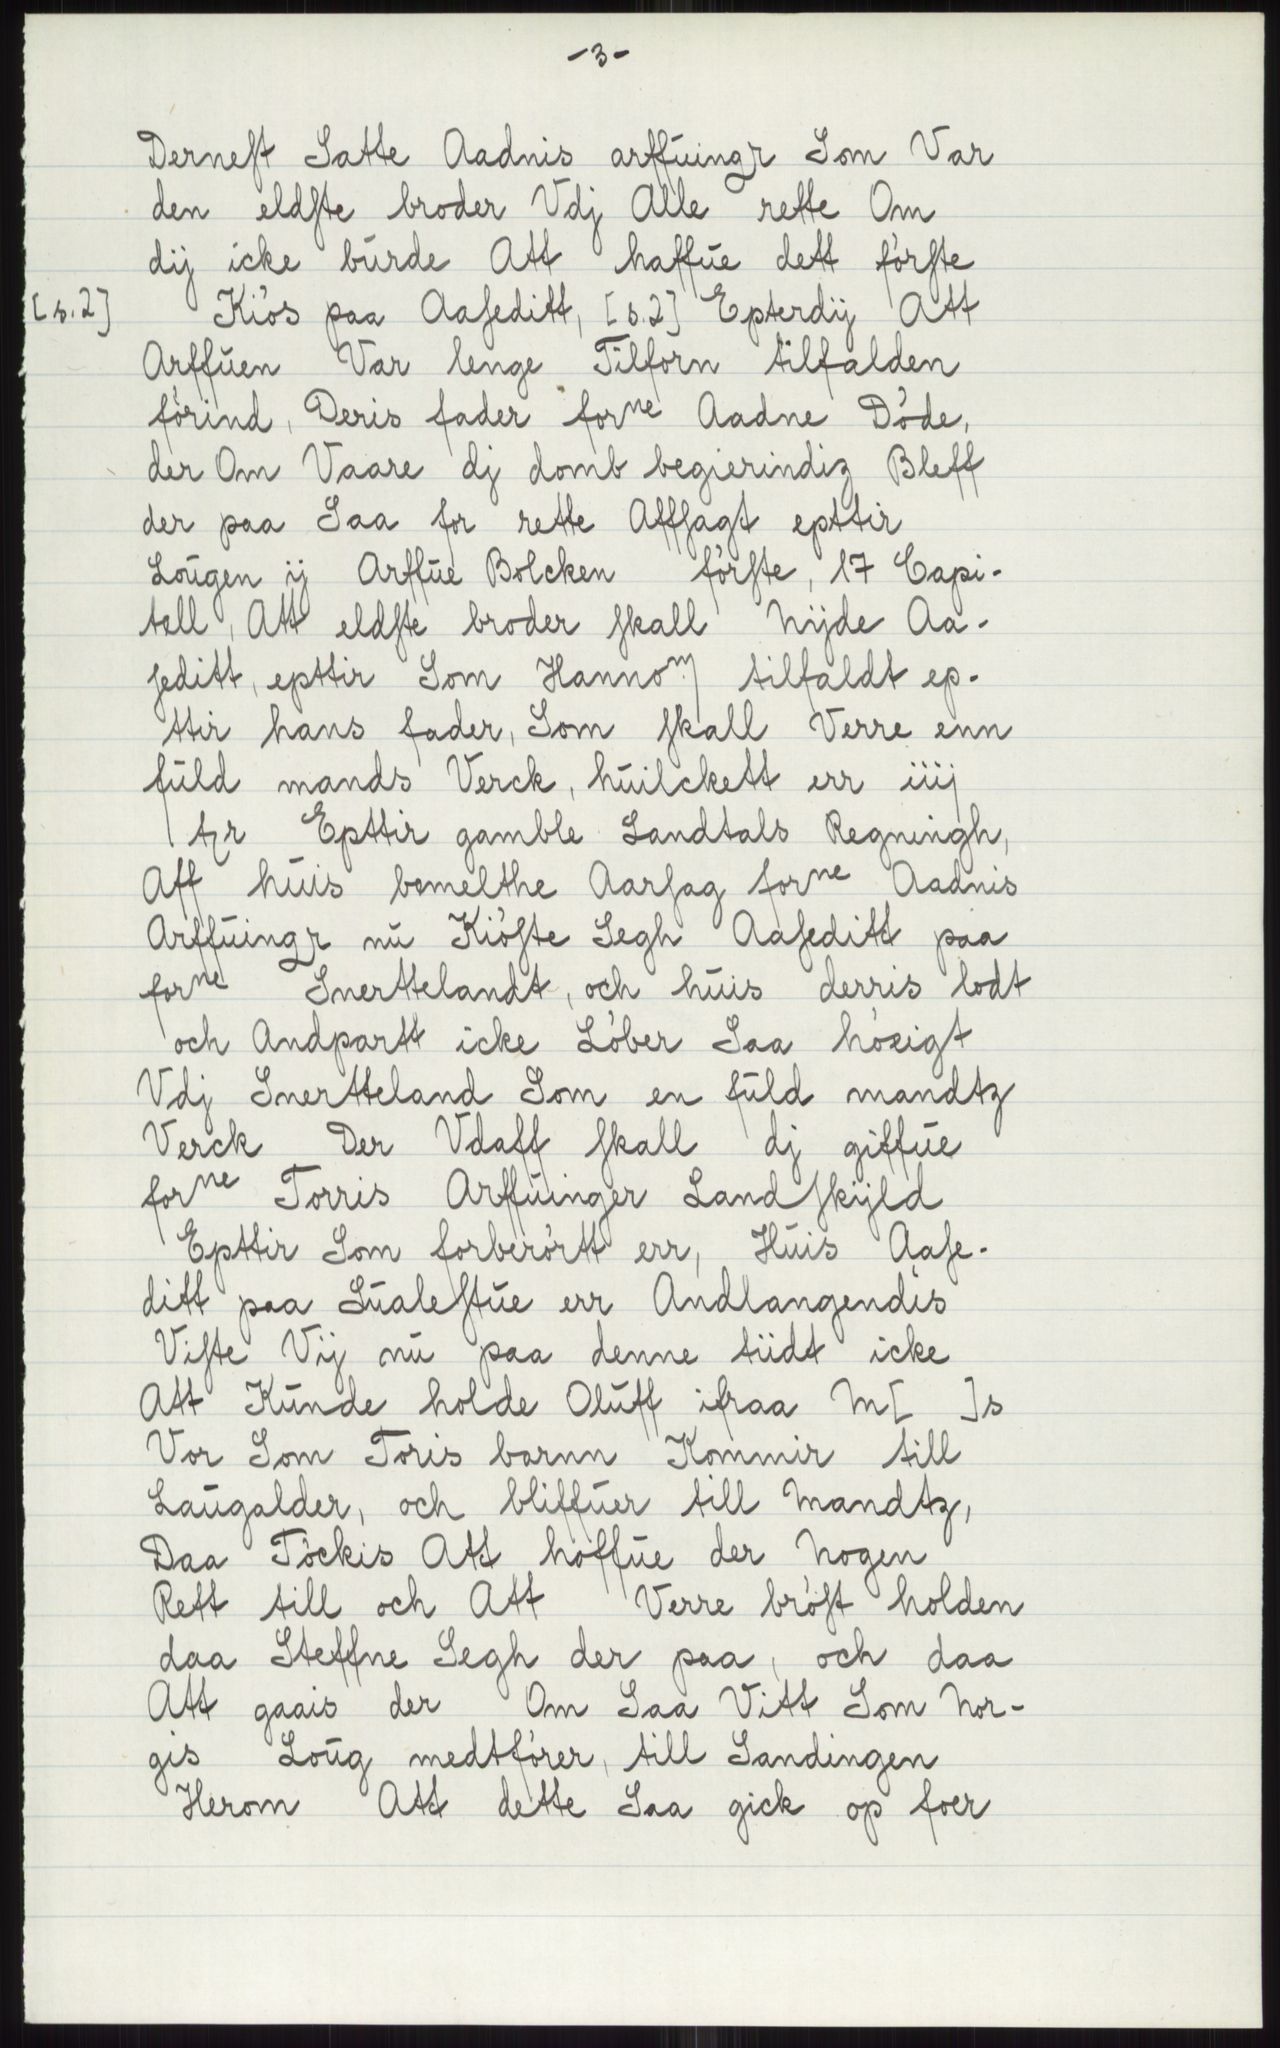 -3-
Dernest Satte Aadnis arffuingr Som Var
den eldste broder Vdj Alle rette Om
dij icke burde Att haffue dett första
[s.2] Kiös paa Aaseditt, [s.2] Epterdij Att
Arffuen Var lenge Tilforn tilfalden
förind, Deris fader forne Aadne Döde,
der Om Vaare dj domb begierindiz Bleff
der paa Saa for rette Affsagt epttir
Lougen ij Arffue Bolcken förste, 17 Capi-
tell, Att eldste broder skall Nijde Aa-
seditt, epttir Som Hannom tilfaldt ep-
ttir hans fader, Som skall Verre enn
fuld mands Verck, huilckett err iiij
Epttir gamble Landtals Regningh,
Aff huis bemelthe Aarsag forne Aadnis
Arffuingr nu Kiöste Segh Aaseditt paa
forne Snerttelandt, och huis derris lodt
och Andpartt icke Löber Saa höxigt
Vdj Snertteland Som en fuld mandtz
Verck Der Vdaff skall dj giffue
forne Torris Arffuinger Landskijld
Epttir Som forberörtt err, Huis Aase-
ditt paa Sualestue err Andlangendis
Viste Vij nu paa denne tiidt icke
Att Kunde holde Oluff ifraa M[ ]s
Vor Som Toris barnn Kommir till
Laugalder, och bliffuer till Mandtz,
Daa Töckis Att haffue der Nogen
Rett till och Att Verre bröst holden
daa Steffne Segh der paa, och daa
Att gaais der Om Saa Vitt Som Nor-
gis Loug medtförer, till Sandingen
Herom Att dette Saa gick op foer